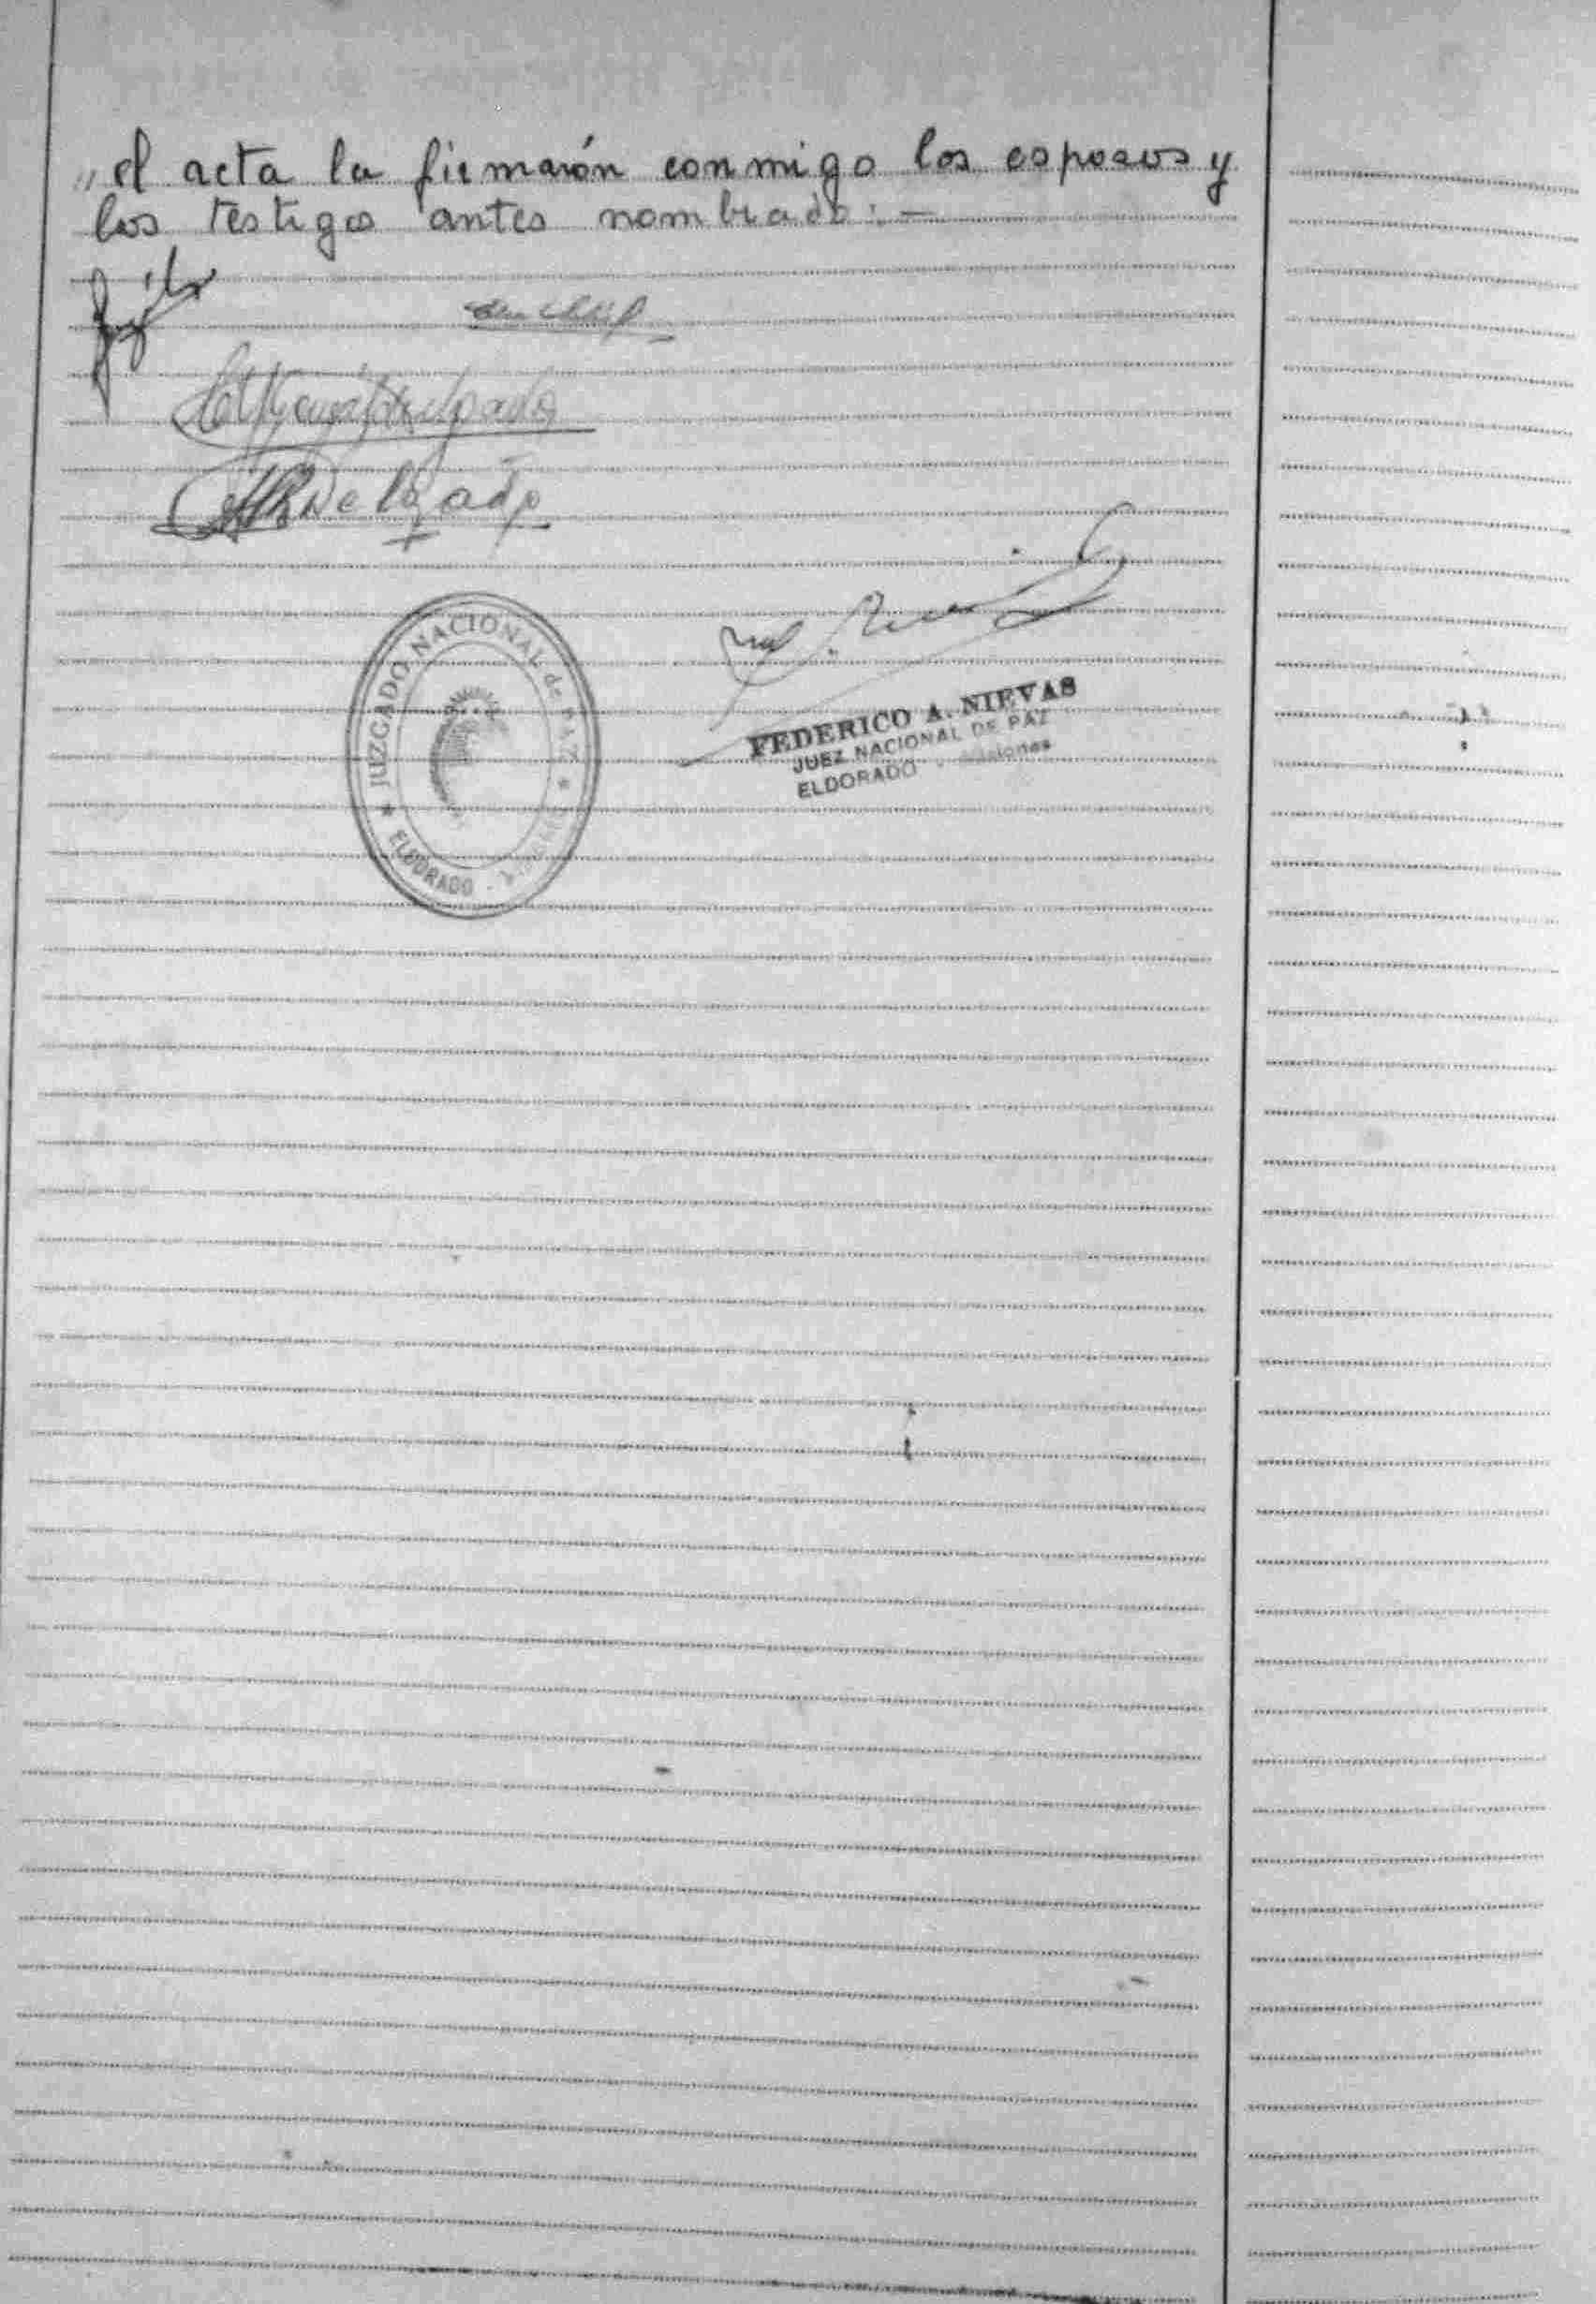 „ el acta la firmarón conmigo los esposos y
los testigos antes nombrado: —
Delgado
JUZGADO NACIONAL de PAZ
ELDORADO
FEDERICO A. NIEVAS
JUEZ NACIONAL DE PAZ
ELDORADO - Misiones